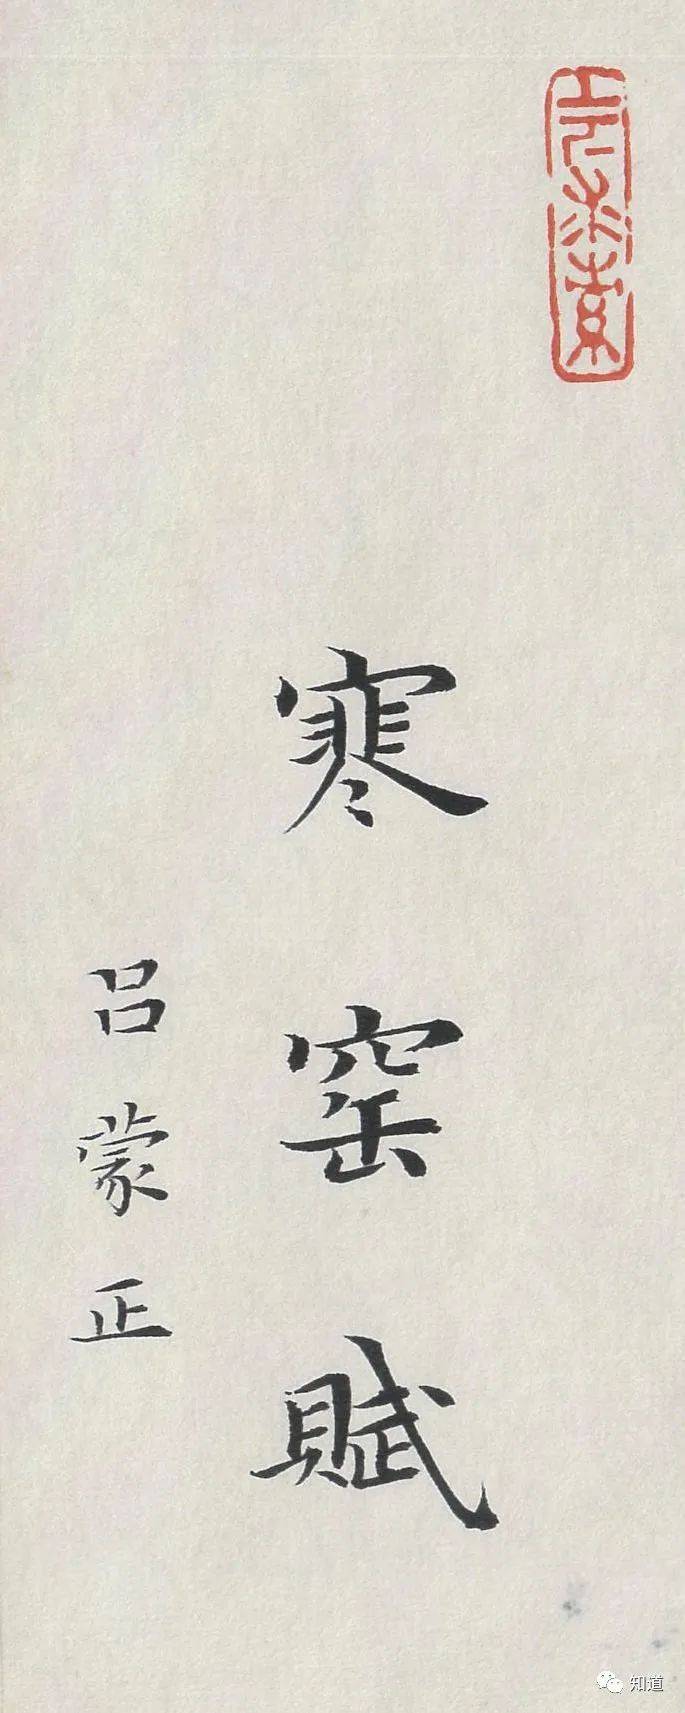 寒窑賦
吕蒙正
知道